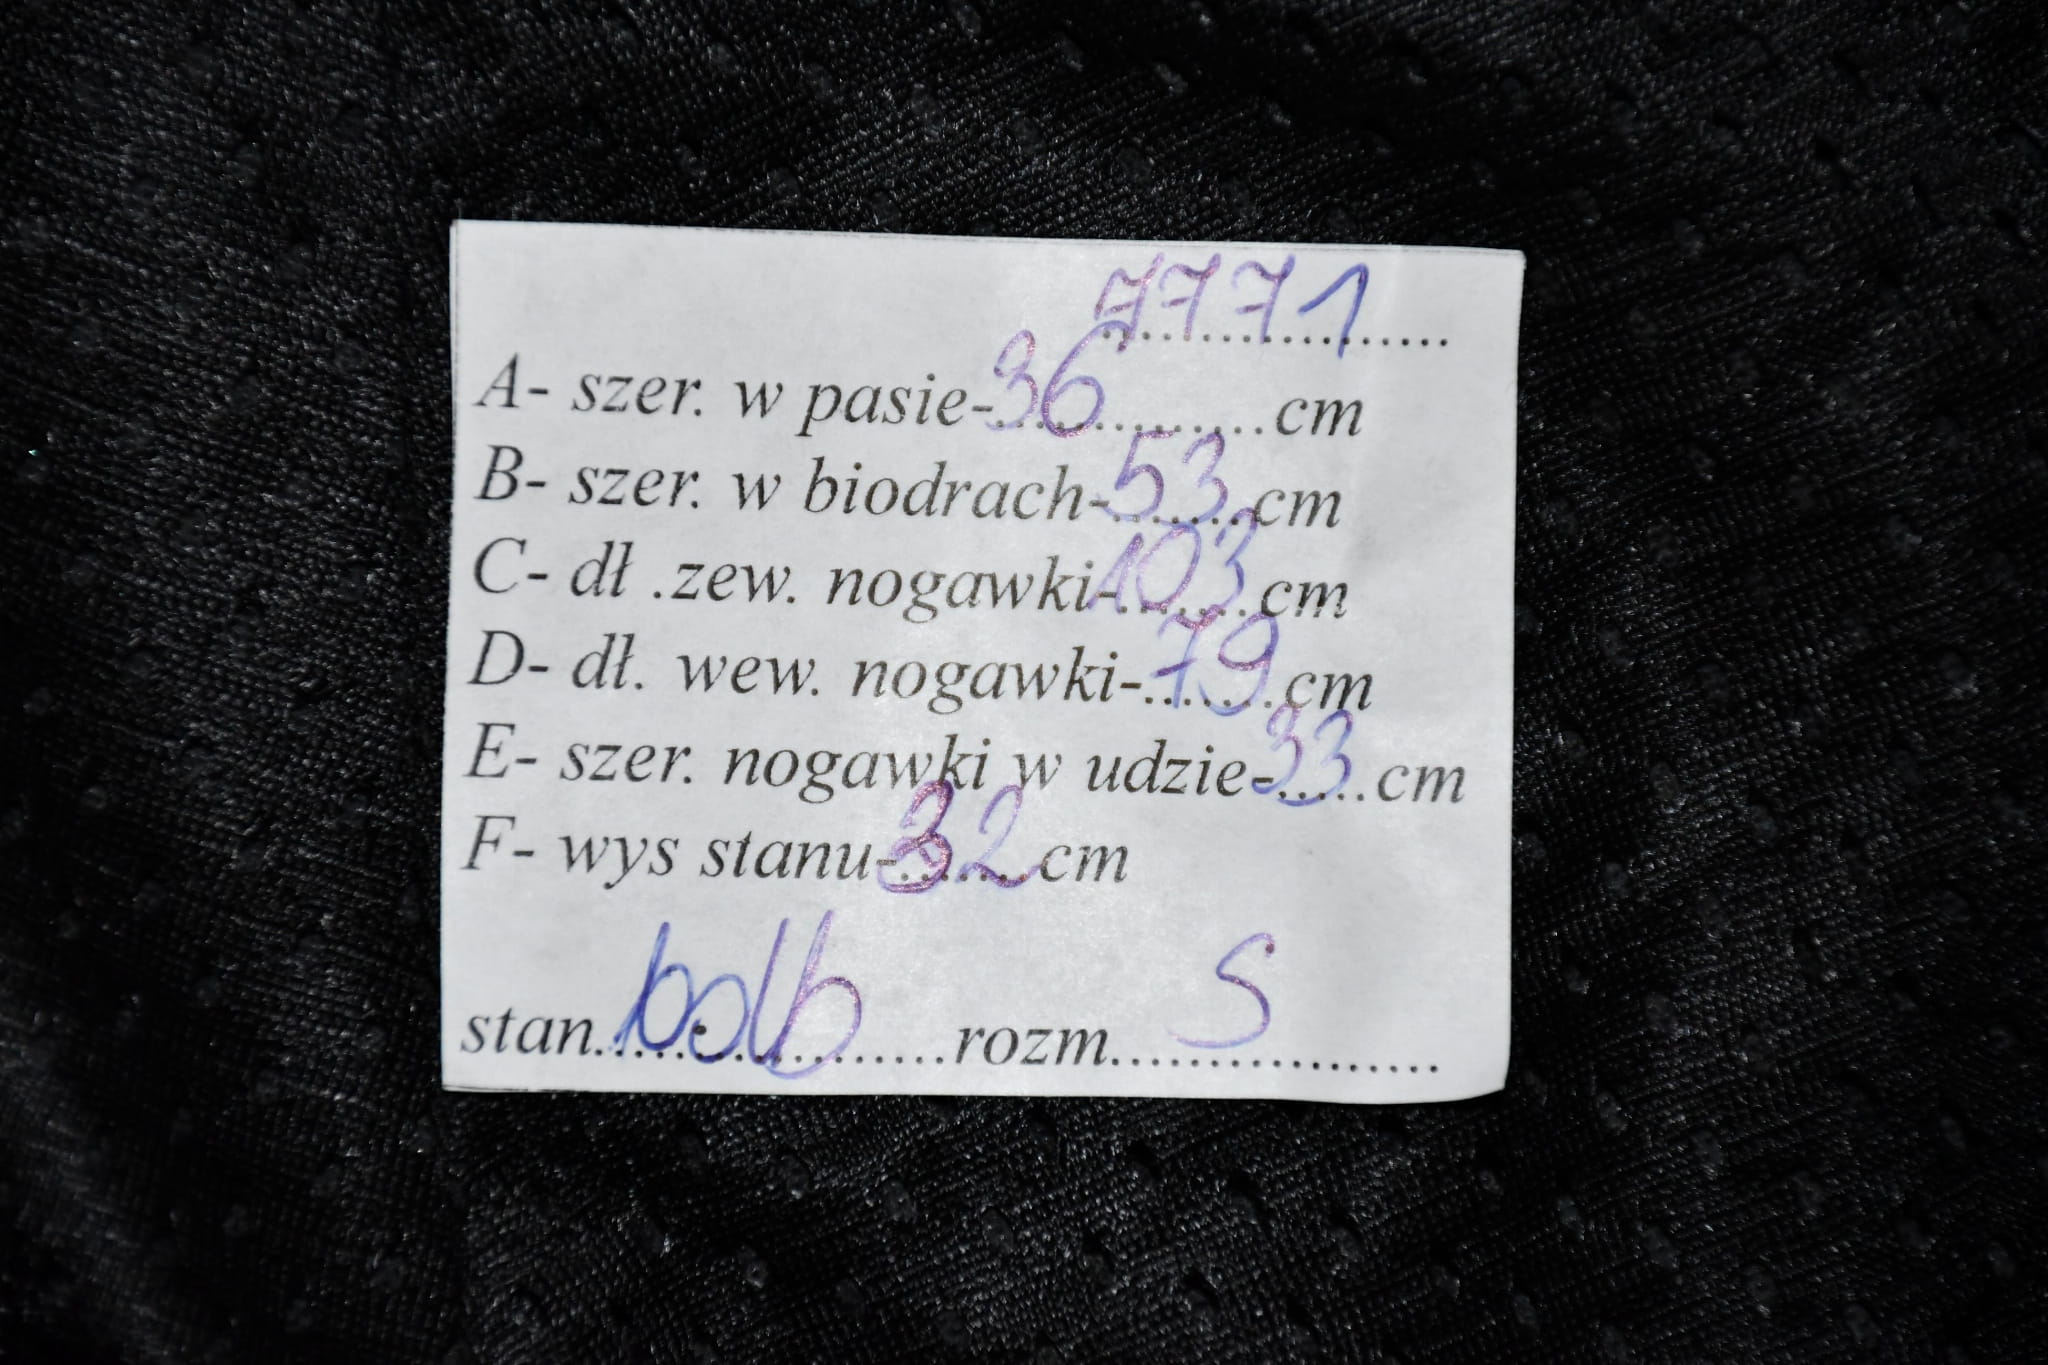 7771
A- szer. w pasie-36..............cm
B- szer. w biodrach-53cm
C- dł .zew. nogawki-103cm
D- dł. wew. nogawki-79cm
E- szer. nogawki w udzie-33cm
F- wys stanu-32cm
stan....bdb....rozm....S....